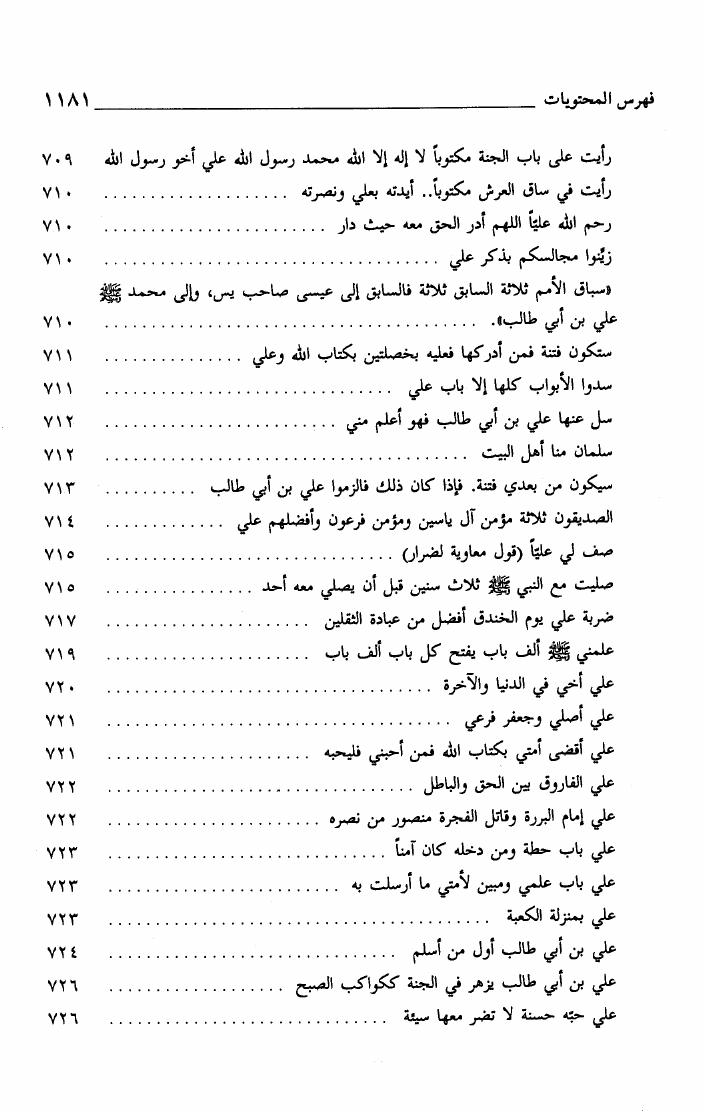 فهرس المحتويات ١١٨١
رأيت على باب الجنة مكتوباً لا إله إلا الله محمد رسول الله علي أخو رسول الله ٧٠٩
رأيت في ساق العرش مكتوباً.. أيدته بعلي ونصرته ٧١٠
رحم الله عليّاً اللهم أدر الحق معه حيث دار ٧١٠
زيِّنوا مجالسكم بذكر علي ٧١٠
«سباق الأمم ثلاثة السابق ثلاثة فالسابق إلى عيسى صاحب يس، وإلى محمد ﷺ
علي بن أبي طالب». ٧١٠
ستكون فتنة فمن أدركها فعليه بخصلتين بكتاب الله وعلي ٧١١
سدوا الأبواب كلها إلا باب علي ٧١١
سل عنها علي بن أبي طالب فهو أعلم مني ٧١٢
سلمان منا أهل البيت ٧١٢
سيكون من بعدي فتنة. فإذا كان ذلك فالزموا علي بن أبي طالب ٧١٣
الصديقون ثلاثة مؤمن آل ياسين ومؤمن فرعون وأفضلهم علي ٧١٤
صف لي عليّاً (قول معاوية لضرار) ٧١٥
صليت مع النبي ﷺ ثلاث سنين قبل أن يصلي معه أحد ٧١٥
ضربة علي يوم الخندق أفضل من عبادة الثقلين ٧١٧
علمني ﷺ ألف باب يفتح كل باب ألف باب ٧١٩
علي أخي في الدنيا والآخرة ٧٢٠
علي أصلي وجعفر فرعي ٧٢١
علي أقضى أمتي بكتاب الله فمن أحبني فليحبه ٧٢١
علي الفاروق بين الحق والباطل ٧٢٢
علي إمام البررة وقاتل الفجرة منصور من نصره ٧٢٢
علي باب حطة ومن دخله كان آمناً ٧٢٣
علي باب علمي ومبين لأمتي ما أرسلت به ٧٢٣
علي بمنزلة الكعبة ٧٢٣
علي بن أبي طالب أول من أسلم ٧٢٤
علي بن أبي طالب يزهر في الجنة ككواكب الصبح ٧٢٦
علي حبّه حسنة لا تضر معها سيئة ٧٢٦